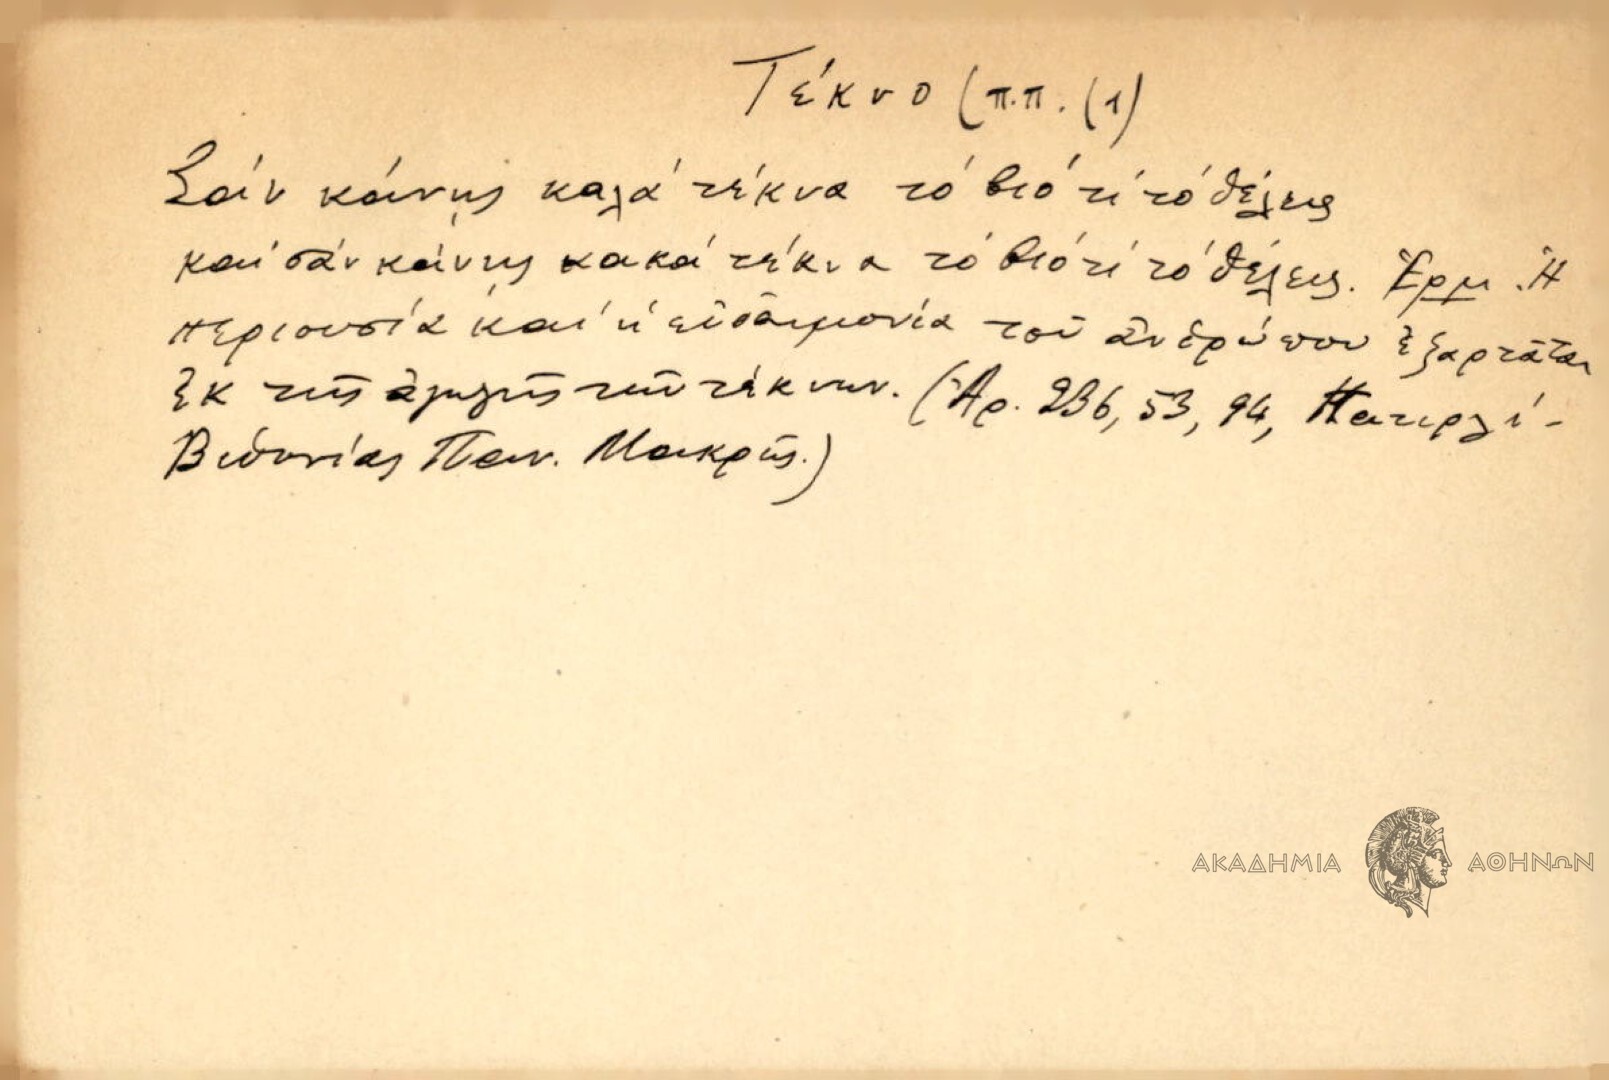 Τέκνο (π.π. (1)
Σάν κάνῃς καλά τέκνα τό βιό τί τό θέλεις
καί σάν κάνῃς κακά τέκνα τό βιό τί τό θέλεις. Ἑρμ. Ἡ
περιουσία καί ἡ εὐδαιμονία τοῦ ἀνθρώπου ἐξαρτᾶται
ἐκ τῆς ἀγωγῆς τῶν τέκνων. (Ἀρ. 236, 53, 94,
Βιθυνίας Παν. Μακρῆς.)
ΑΚΑΔΗΜΙΑ ΑΘΗΝΩΝ